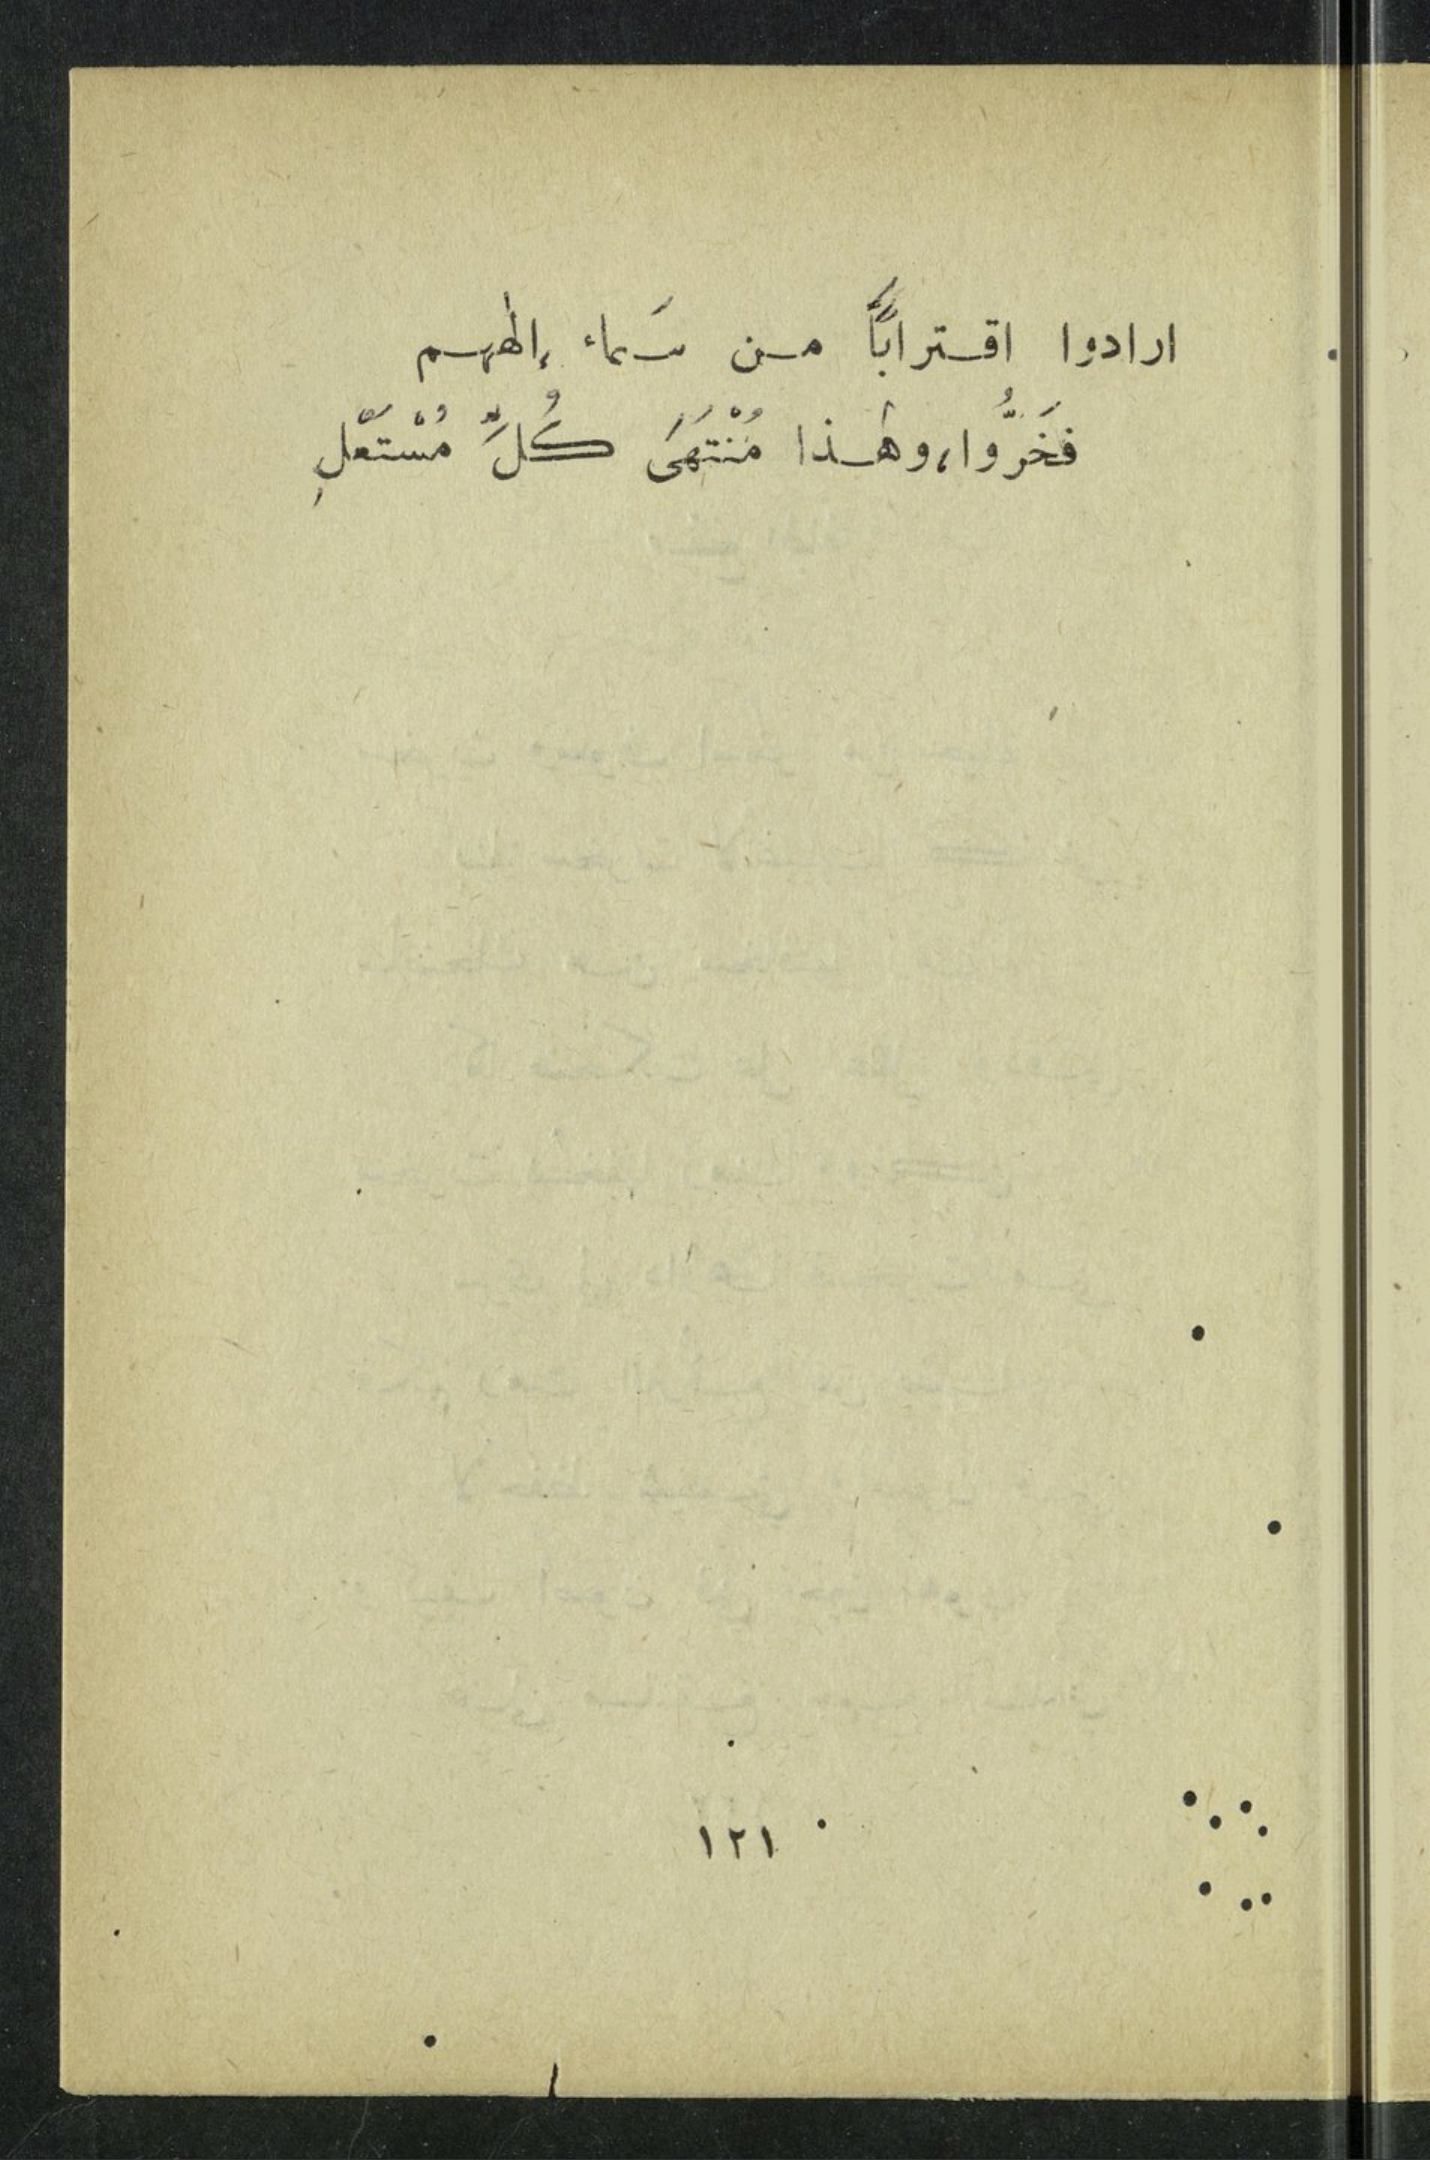 ارادوا اقتراباً من سَماء إلٰههم
فَخَرُّوا، وهٰذا مُنْتَهَى كُلِّ مُسْتَعْلِ
١٢١